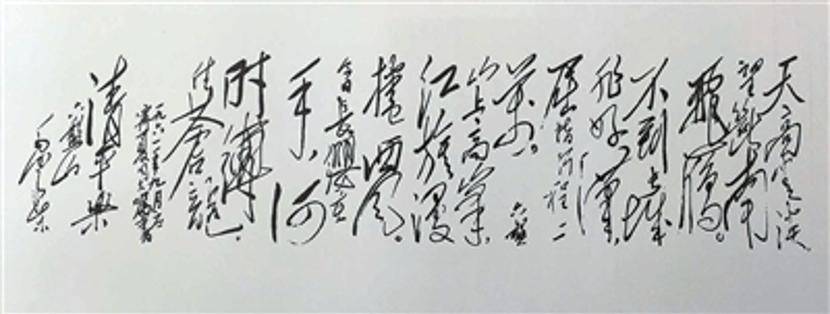 天高雲淡，
望斷南
飛雁。
不到長城
非好漢，
屈指行程二
萬。六盤
山上高峯，
紅旗漫
捲西風。
今日長纓在
手，何
時縛
住蒼龍？
一九六一年九月
寧夏同志囑書
清平樂
六盤山
毛澤東